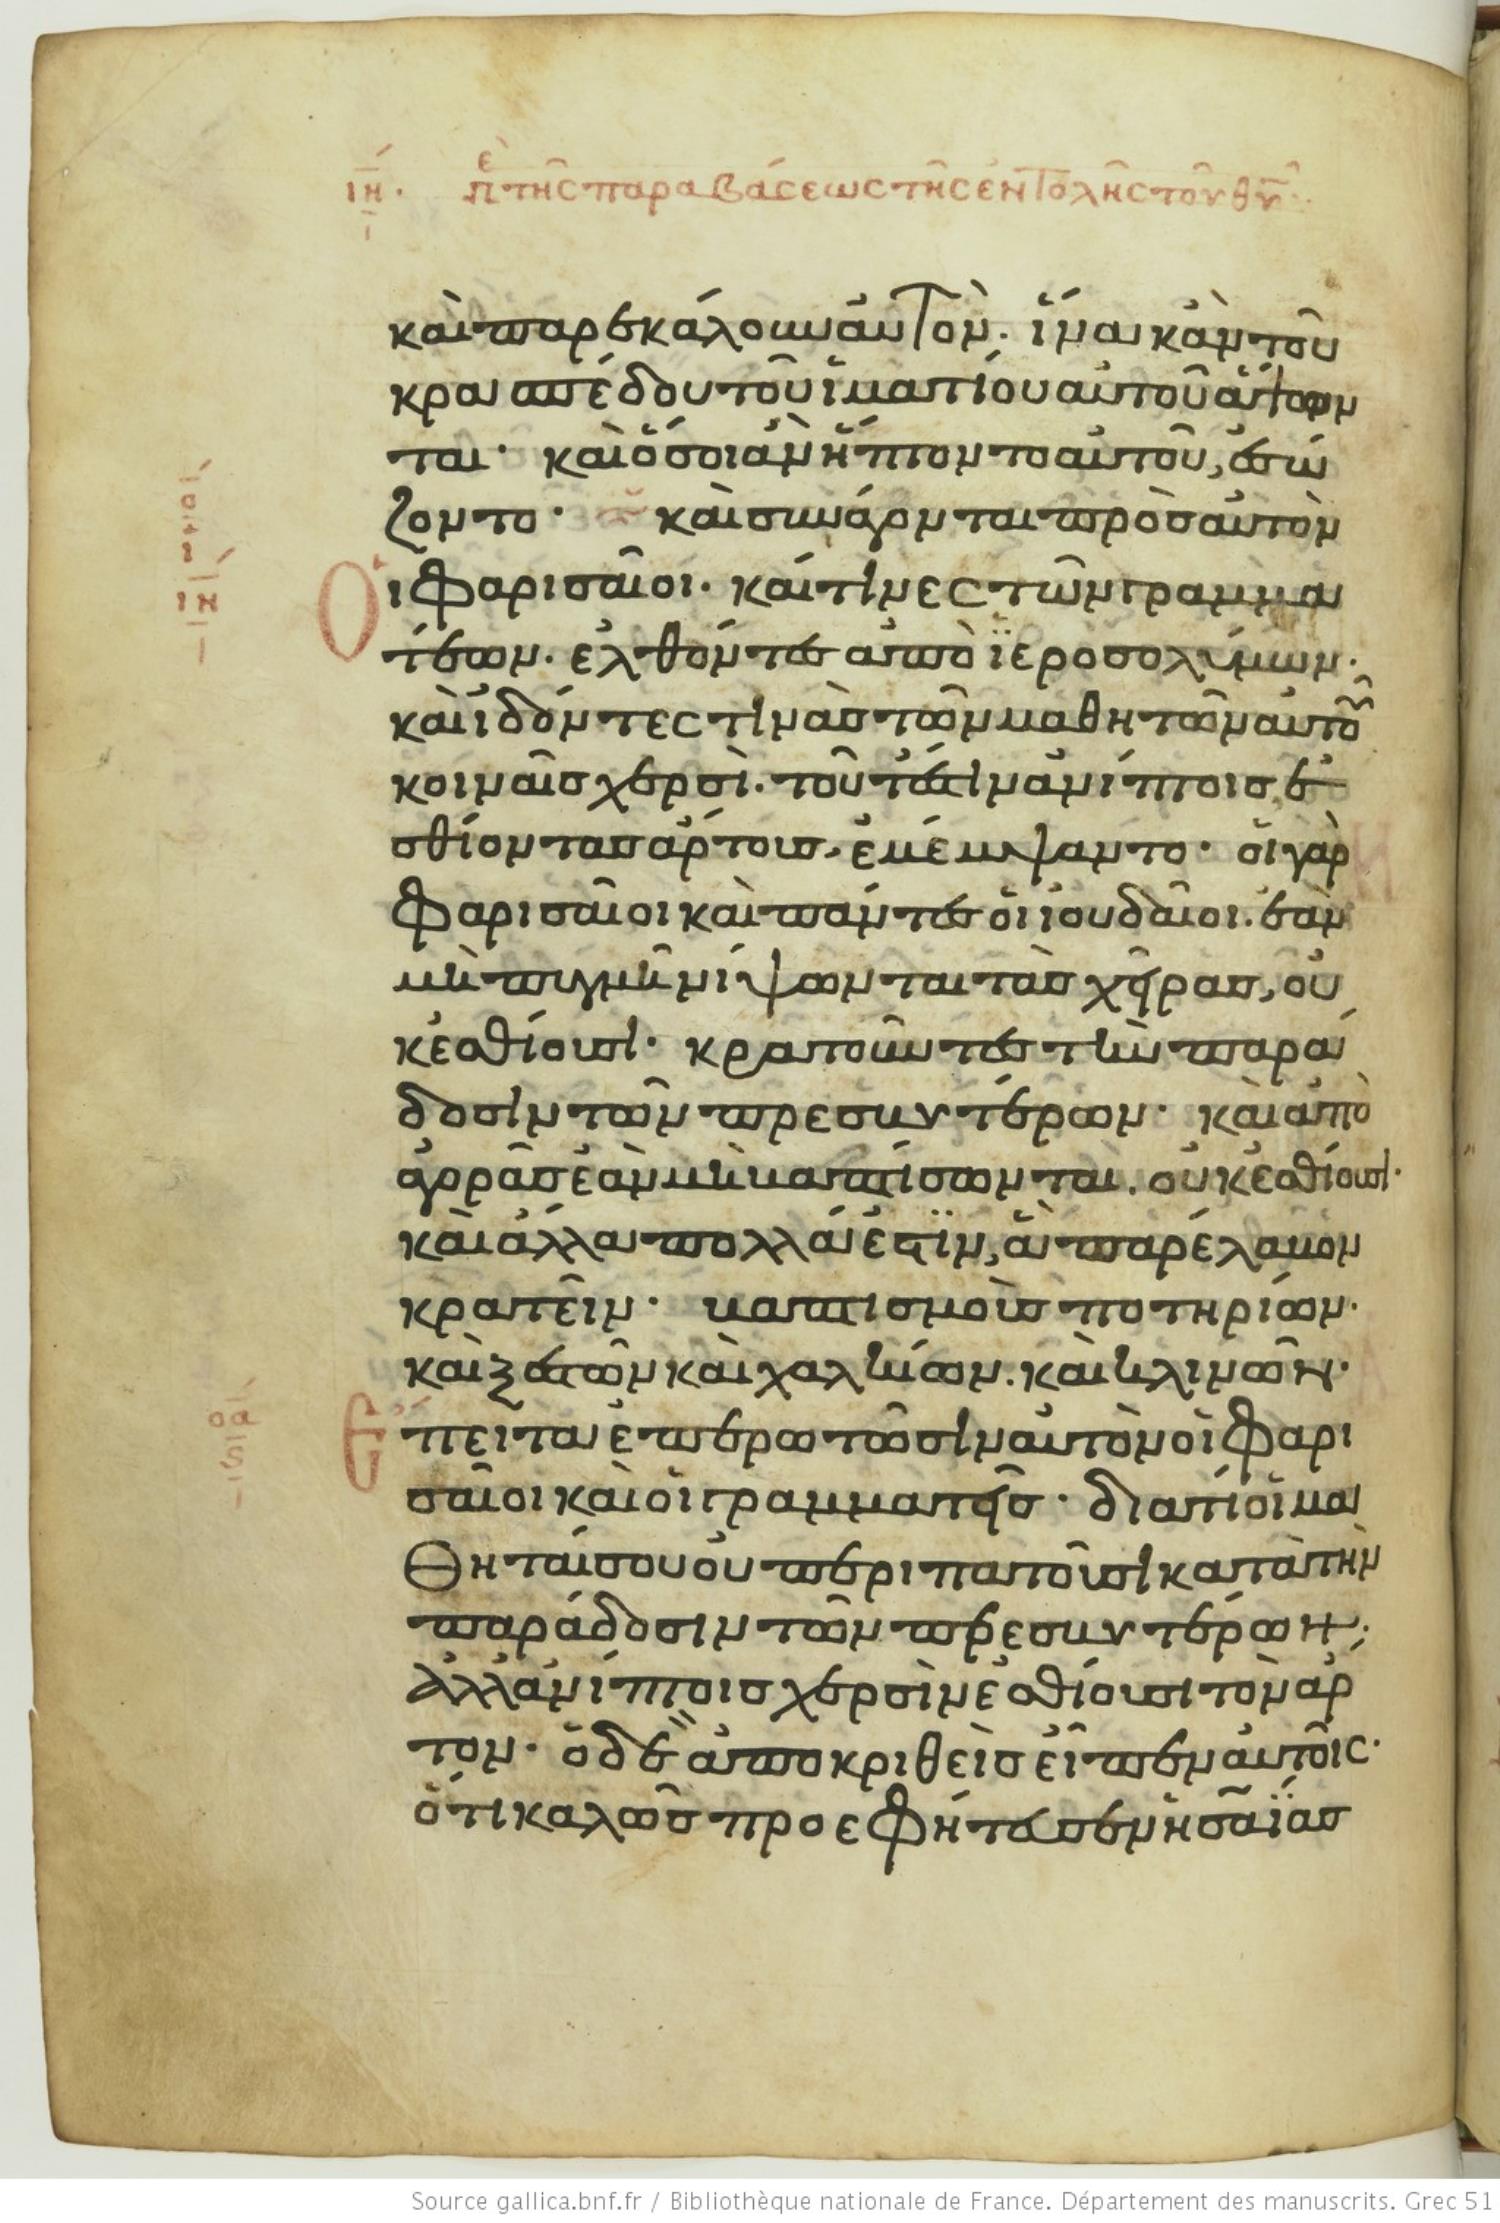 ιη· πε τῆς παραβάσεως τῆς ἐντολῆς τοῦ θυ
καὶ παρεκάλουν αὐτὸν· ἵνα κἂν τοῦ
κρασπέδου τοῦ ἱματίου αὐτοῦ ἅψων
ται· καὶ ὅσοι ἂν ἥπτοντο αὐτοῦ, ἐσώ
ζοντο· καὶ συνάγονται πρὸς αὐτὸν
Οἱ φαρισαῖοι· καί τινες τῶν γραμμα
τέων· ἐλθόντες ἀπὸ ϊεροσολύμων·
καὶ ἰδόντες τινὰς τῶν μαθητῶν αὐτοῦ
κοιναῖς χερσὶ· τοῦτέστιν ἀνίπτοις ἐ
σθίοντας ἄρτους, ἐμέμψαντο· οἱ γὰρ
φαρισαῖοι καὶ πάντες οἱ ἰουδαῖοι· ἐὰν
μὴ πυγμῆ νίψωνται τὰς χεῖρας, οὐ
κ ἐσθίουσι· κρατοῦντες τὴν παρά
δοσιν τῶν πρεσβυτέρων· καὶ ἀπὸ
ἀγορᾶς ἐὰν μὴ βαπτίσωνται· οὐκ ἐσθίουσι·
καὶ ἄλλα πολλά ἐστϊν, ἃ παρέλαβον
κρατεῖν· βαπτισμοὺς ποτηρίων·
καὶ ξεστῶν καὶ χαλκίων· καὶ κλινῶν·
Ἔπειτα ἐπερωτῶσιν αὐτὸν οἱ φαρι
σαῖοι καὶ οἱ γραμματεῖς· διατί οἱ μα
θηταί σου οὐ περιπατοῦσι κατὰ τὴν
παράδοσιν τῶν πρεσβυτέρων;
ἀλλ' ἀνίπτοις χερσὶν ἐσθίουσι τὸν ἄρ
τον· ὁ δὲ ἀποκριθεὶς εἶπεν αὐτοῖς·
ὅτι καλῶς προεφήτευσεν ἡσαΐας
ιη
οα
ς
Source gallica.bnf.fr / Bibliothèque nationale de France. Département des manuscrits. Grec 51